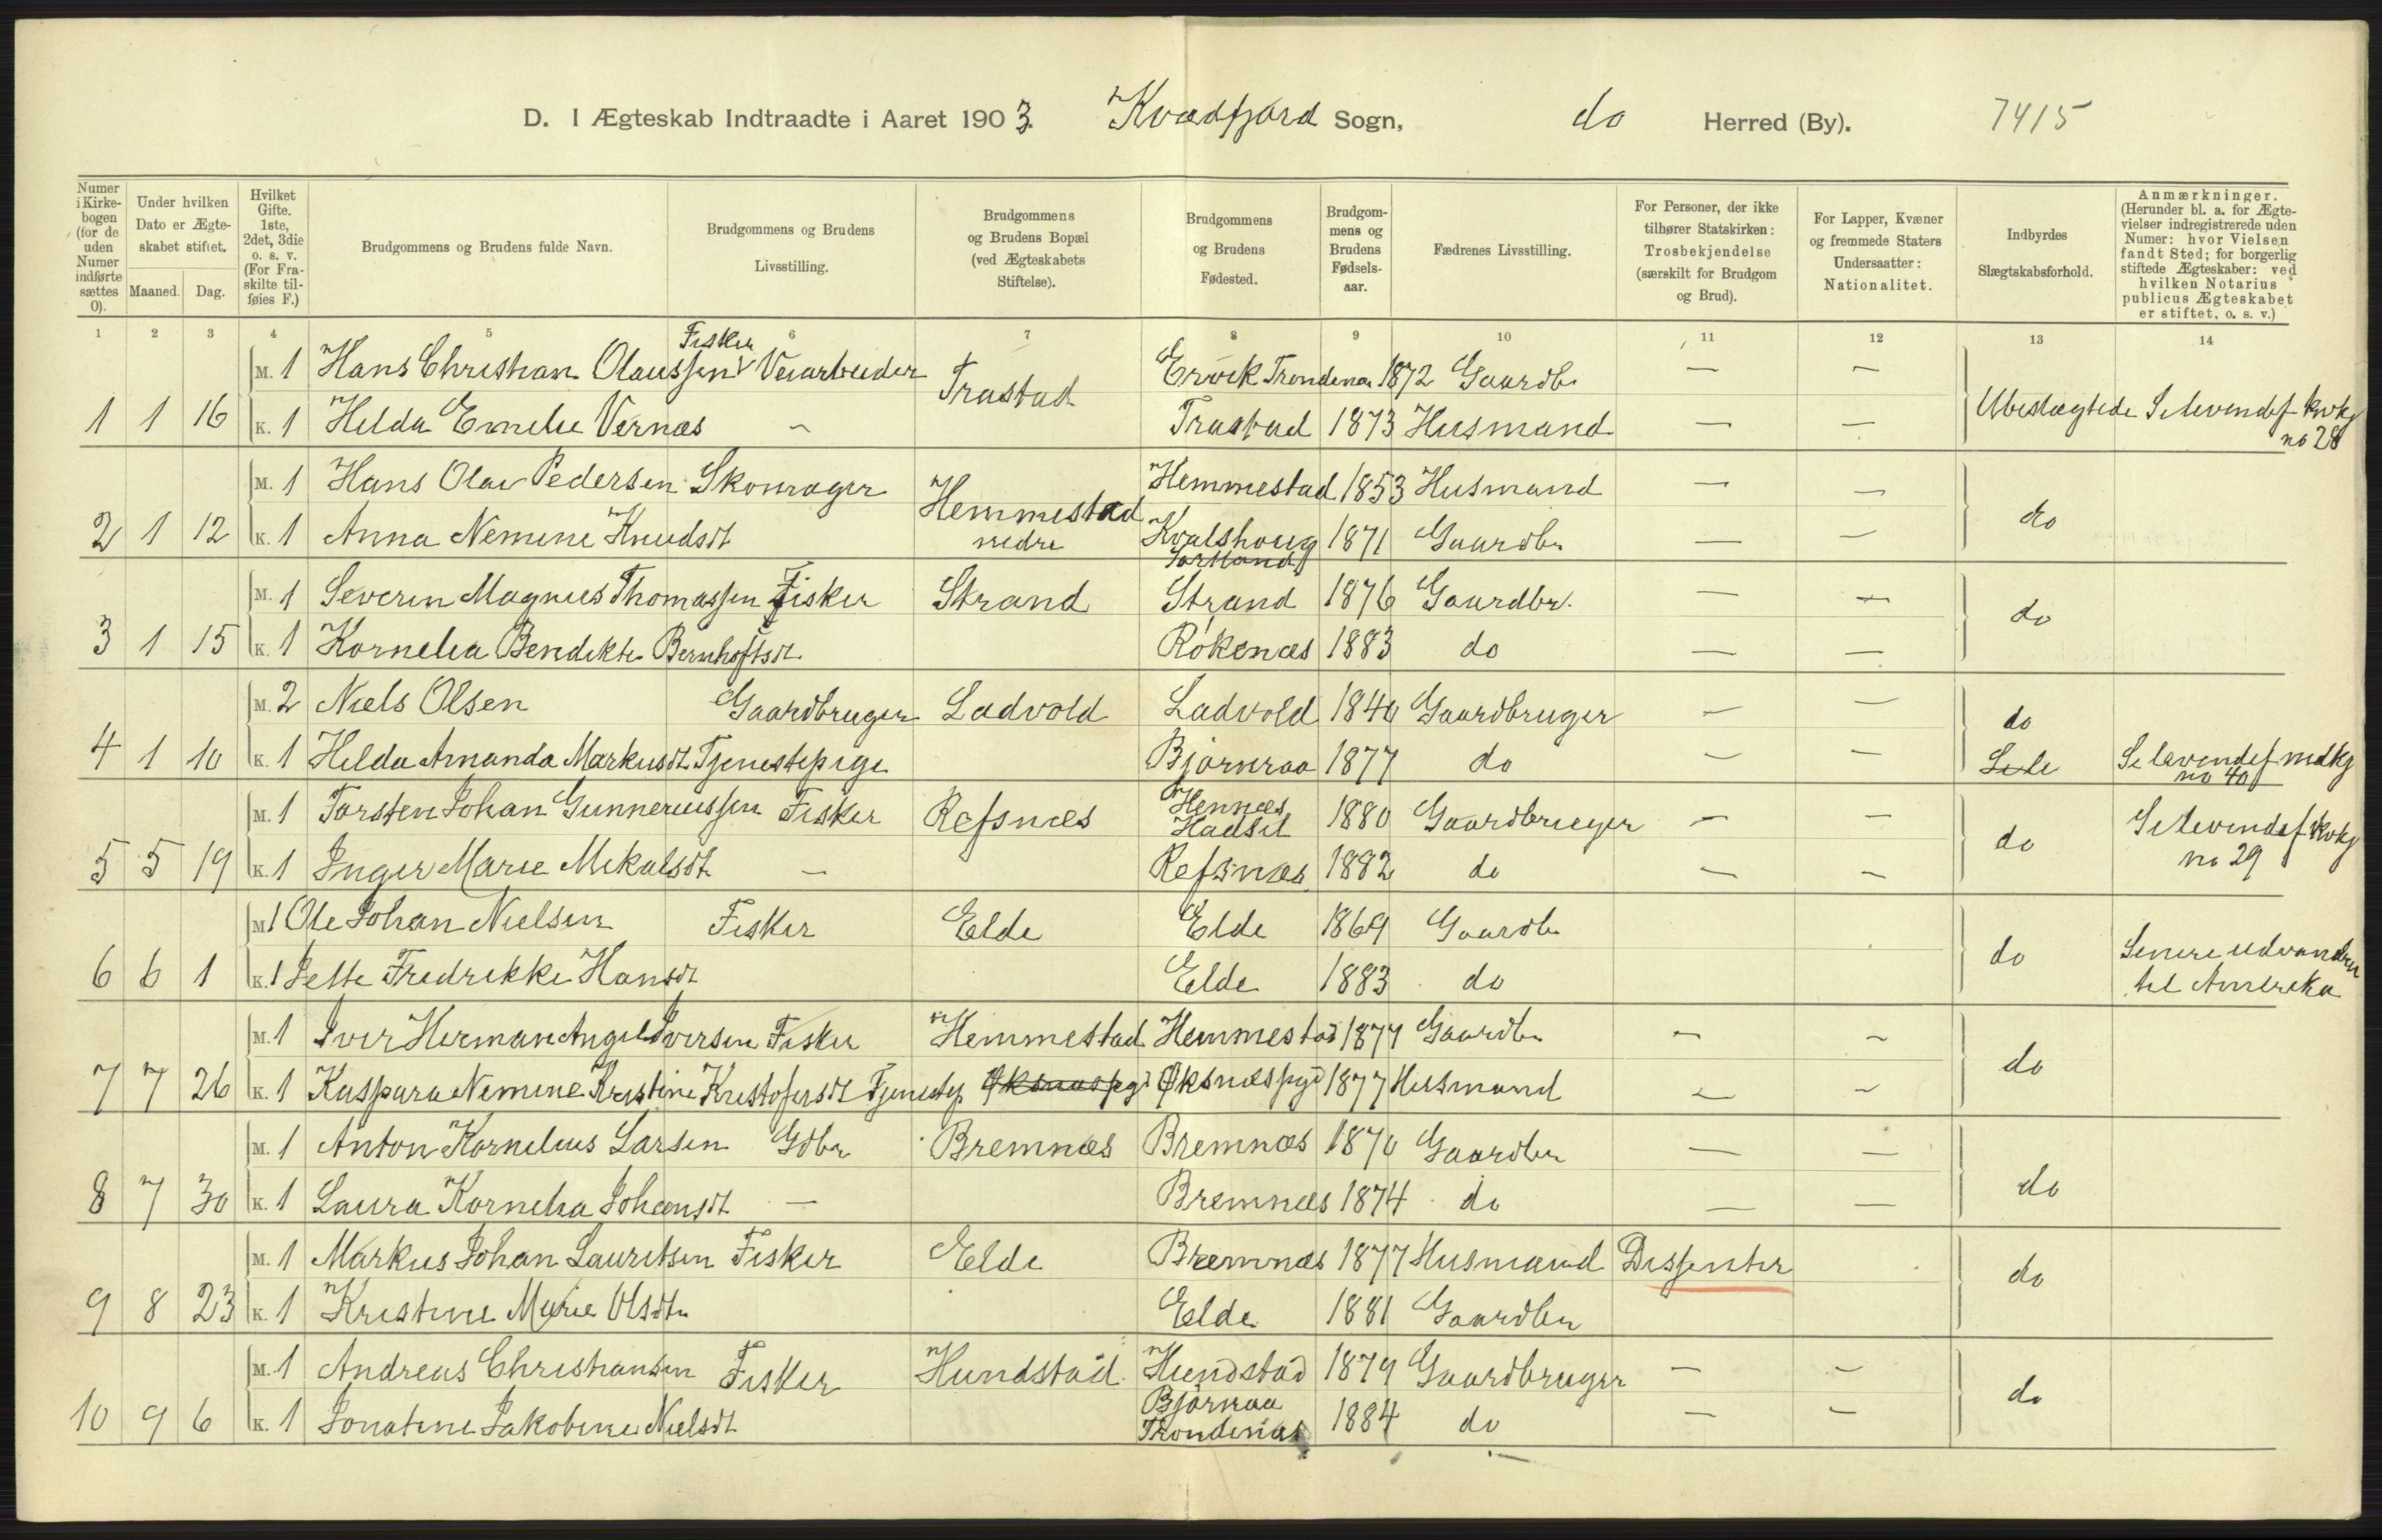 D. I Ægteskab Indtraadte i Aaret 1903. Kvædfjord Sogn, do Herred (By). 7415
Numer i Kirkebogen (for de uden Numer indførte sættes 0).
Under hvilken Dato er Ægteskabet stiftet.
Maaned. Dag.
Hvilket Gifte. 1ste, 2det, 3die o. s. v. (For Fraskilte tilføies F.)
Brudgommens og Brudens fulde Navn.
Brudgommens og Brudens Livsstilling.
Brudgommens og Brudens Bopæl (ved Ægteskabets Stiftelse).
Brudgommens og Brudens Fødested.
Brudgommens og Brudens Fødselsaar.
Fædrenes Livsstilling.
For Personer, der ikke tilhører Statskirken: Trosbekjendelse (særskilt for Brudgom og Brud).
For Lapper, Kvæner og fremmede Staters Undersaatter: Nationalitet.
Indbyrdes Slægtskabsforhold.
Anmærkninger. (Herunder bl. a. for Ægtevielser indregistrerede uden Numer: hvor Vielsen fandt Sted; for borgerlig stiftede Ægteskaber: ved hvilken Notarius publicus Ægteskabet er stiftet, o. s. v.)
1 2 3 4 5 6 7 8 9 10 11 12 13 14
Fisker
M. 1 Hans Christian Olaussen Veiarbeider Trastad Ervik Trondenæs 1872 Gaardbr — —
1 1 16 K. 1 Hilda Emelie Vernæs — Trastad 1873 Husmand — — Ubeslægtede
no 28
M. 1 Hans Olai Pedersen Skomager Hemmestad Hemmestad 1853 Husmand — —
2 1 12 K. 1 Anna Nemine Knudsdt nedre Kvalshoug 1871 Gaardbr — — do
Sortland
M. 1 Severin Magnus Thomassen Fisker Strand Strand 1876 Gaardbr. — —
3 1 15 K. 1 Kornelia Bendikte Bernhoftsdt Røkenæs 1883 do — — do
M. 2 Niels Olsen Gaardbruger Ladvold Ladvold 1840 Gaardbruger — — do
4 1 10 K. 1 Hilda Amanda Markusdt Tjenestepige Bjørnraa 1877 do — —
no 40
M. 1 Torsten Johan Gunneriussen Fisker Refsnæs Hennæs Hadsel 1880 Gaardbruger — —
5 5 19 K. 1 Inger Marie Mikalsdt — Refsnæs 1882 do — — do
no 29
M. 1 Ole Johan Nielsen Fisker Elde Elde 1869 Gaardbr
6 6 1 K. 1 Jette Fredrikke Hansdt Elde 1883 do do Senere udvandret
til Amerika
M. 1 Iver Herman Angel Iversen Fisker Hemmestad Hemmestad 1877 Gaardbr — —
7 7 26 K. 1 Kaspara Nemine Kristine Kristofersdt Tjenestep Øksnæspgd Øksnæspgd 1877 Husmand — — do
M. 1 Anton Kornelius Larsen Gdbr Bremnæs Bremnæs 1870 Gaardbr — —
8 7 30 K. 1 Laura Kornelia Johansdt — Bremnæs 1874 do — — do
M. 1 Markus Johan Lauritsen Fisker Elde Bremnæs 1877 Husmand Dissenter
9 8 23 K. 1 Kristine Marie Olsdtr Elde 1881 Gaardbr do
M. 1 Andreas Christiansen Fisker Hundstad Hundstad 1879 Gaardbruger — —
10 9 6 K. 1 Jonatine Jakobine Nielsdt Bjørnraa Trondenæs 1884 do — — do